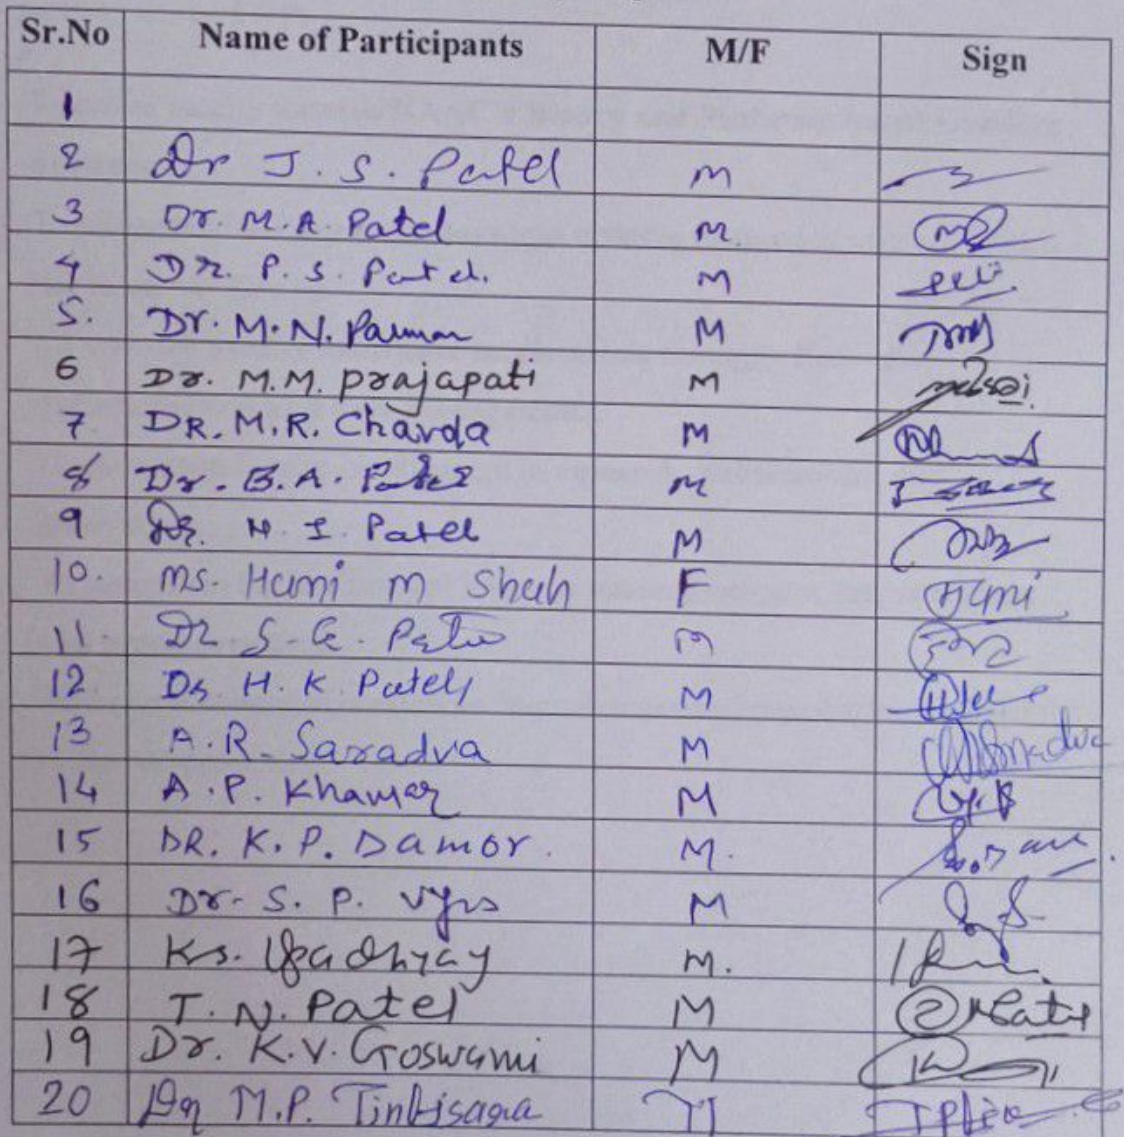 Sr.No Name of Participants M/F Sign
1
2 Dr J. S. Patel M
3 Dr. M.A. Patel M
4 Dr. P. S. Patel. M
5. Dr. M. N. Parmar M
6 Dr. M.M. Prajapati M
7 DR. M.R. Chavda M
8 Dr. B.A. Patel M
9 Dr. N. I. Patel M
10. Ms. Hami M Shah F Hami
11 Dr S. G. Patel M
12 Dr H. K. Patel M
13 A.R. Saradva M
14 A.P. Khamar M
15 DR. K. P. Damor. M.
16 Dr. S. P. Vyas M
17 K.S. Upadhyay M.
18 T. N. Patel M
19 Dr. K.V. Goswami M
20 Dr M.P. M